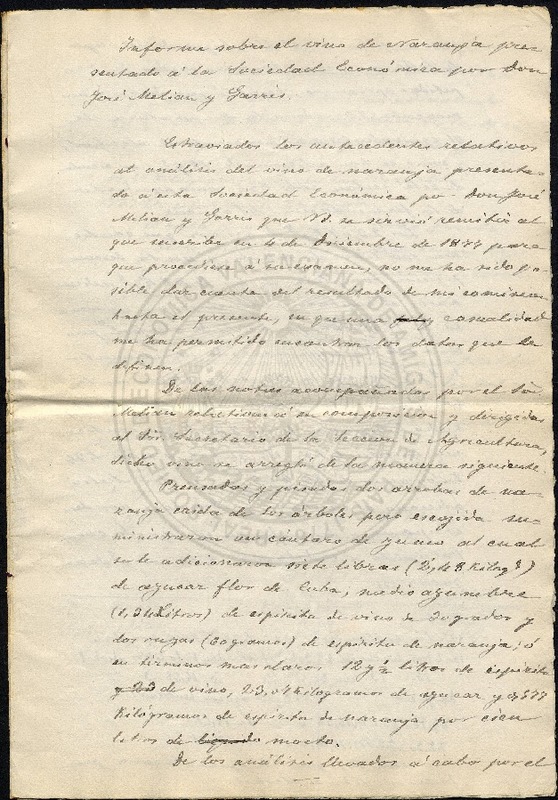 Informe sobre el vino de Naranja pre-
sentado á la Sociedad Económica por Don
José Melian y Garris.
Estraviados los antecedentes relativos
al análisis del vino de naranja presenta-
do á esta Sociedad Económica por Don José
Melian y Garris que Vd. se sirvió remitir al
que suscribe en 4 de Diciembre de 1877 para
que procediese á su examen, no me ha sido po-
sible dar cuenta del resultado de mi comision
hasta el presente, en que una casualidad
me ha permitido encontrar los datos que la
definen.
De las notas acompañadas por el Sor.
Melian relativas á su composicion y dirigidas
al Sr. Secretario de la Seccion de Agricultura,
dicho vino se arregló de la manera siguiente.
Prensadas y pisadas dos arrobas de na-
ranja caida de los árboles pero escojida su-
ministraron un cántaro de zumo al cual
se le adicionaron siete libras (2, Kilogs)
de azucar flor de Cuba, medio azumbre
(1, Litros) de espíritu de vino de grados y
dos onzas (60 gramos) de espíritu de naranja; ó
en términos mas claros 12 y ½ litros de espíritu
de vino, 23,04 Kilogramos de azucar y
Kilógramos de espíritu de naranja por cien
litros de mosto.
De los análisis llevados á cabo por el